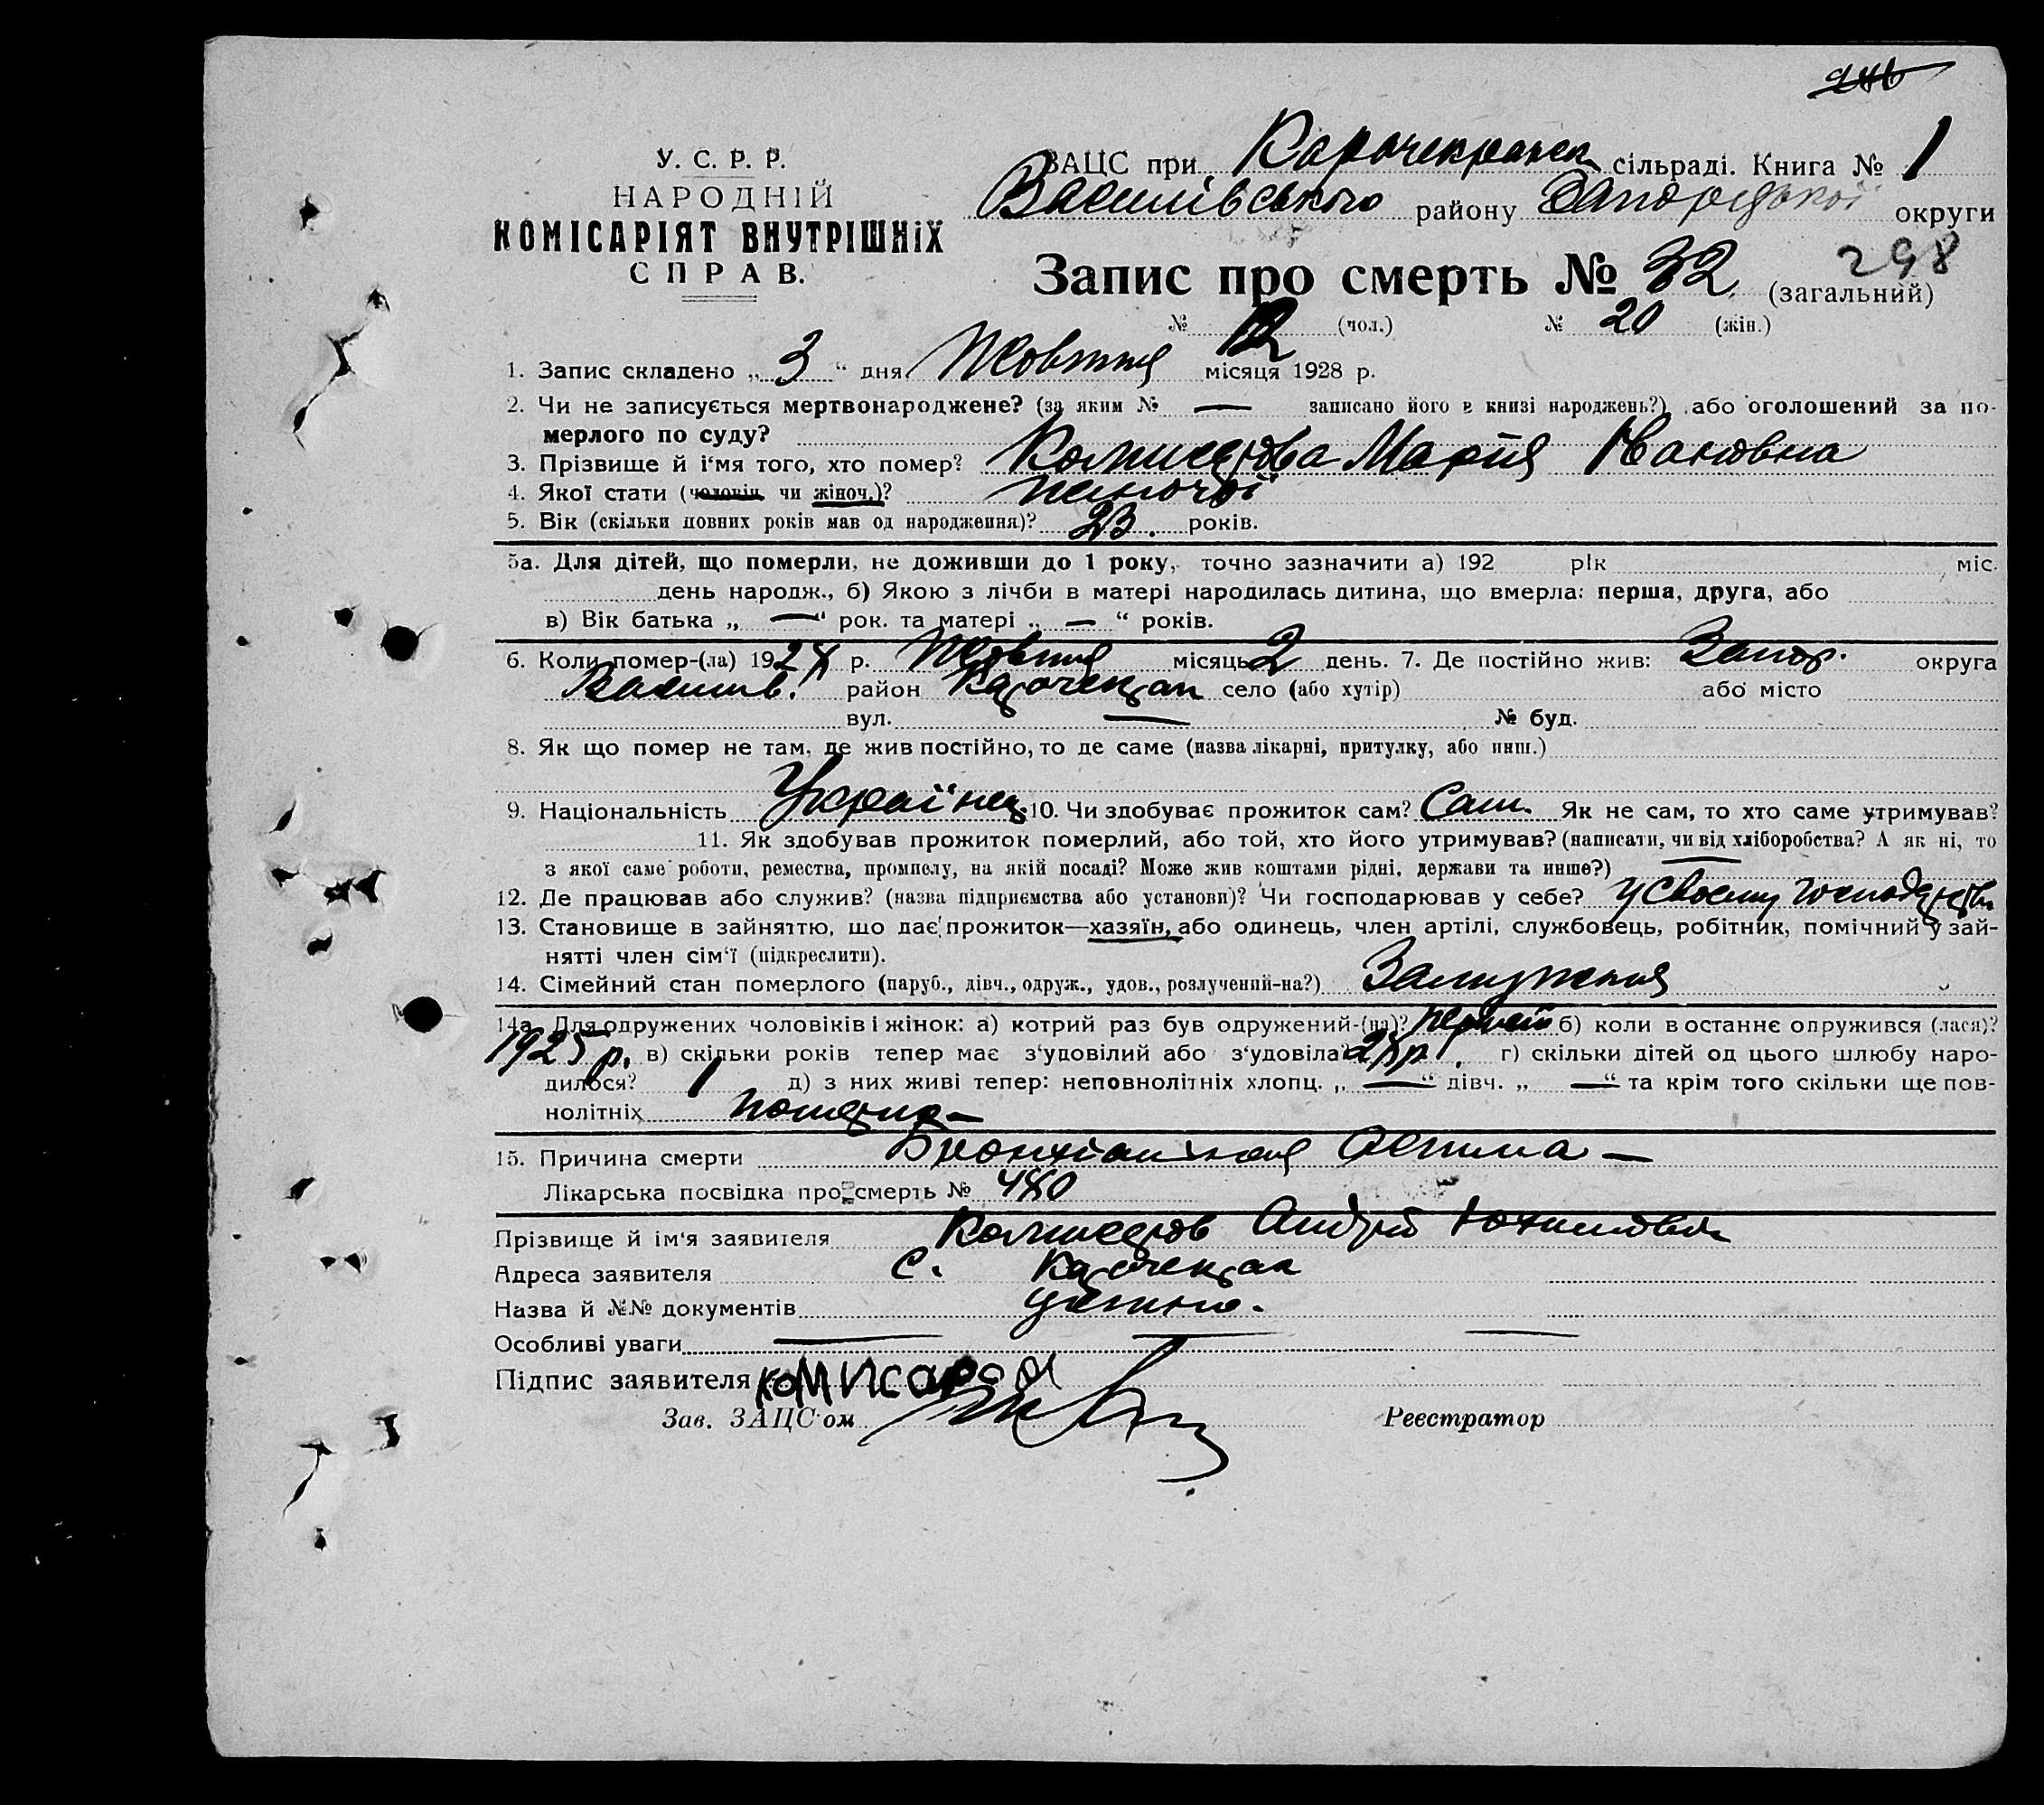 У. С. Р. Р.
НАРОДНІЙ
КОМІСАРІЯТ ВНУТРІШНІХ
СПРАВ.
ЗАЦС при Карачекракск сільраді. Книга № 1
Василівського району Запорізької округи
298
Запис про смерть № 32 (загальний)
№ 12 (чол.) № 20 (жін.)
1. Запис складено „ 3 “ дня Жовтня місяця 1928 р.
2. Чи не записується мертвонароджене? (за яким № — записано його в книзі народжень?) або оголошений за по-
мерлого по суду?
3. Прізвище й і‘мя того, хто помер? Комисарова Мария Ивановна
4. Якої стати (чоловіч. чи жіноч.)? жіночої
5. Вік (скільки повних років мав од народження)? 23. років.
5а. Для дітей, що померли, не доживши до 1 року, точно зазначити а) 192 рік міс.
день народж., б) Якою з лічби в матері народилась дитина, що вмерла: перша, друга, або
в) Вік батька „ — “ рок. та матері „ — “ років.
6. Коли помер-(ла) 1928 р. Жовтня місяць 2 день. 7. Де постійно жив: Запор. округа
Василів. район Карачекрак село (або хутір) або місто
вул. — № буд.
8. Як що помер не там, де жив постійно, то де саме (назва лікарні, притулку, або инш.)
9. Національність Українец. 10. Чи здобуває прожиток сам? Сам. Як не сам, то хто саме утримував?
11. Як здобував прожиток померлий, або той, хто його утримував? (написати, чи від хліборобства? А як ні, то
з якої саме роботи, ремества, промислу, на якій посаді? Може жив коштами рідні, держави та инше?)
12. Де працював або служив? (назва підприємства або установи)? Чи господарював у себе? у своему господарстві
13. Становище в зайняттю, що дає прожиток—хазяїн, або одинець, член артілі, службовець, робітник, помічний у зай-
нятті член сім‘ї (підкреслити).
14. Сімейний стан померлого (паруб., дівч., одруж., удов., розлучений-на?) Замужняя
14а. Для одружених чоловіків і жінок: а) котрий раз був одружений-(на)? первый б) коли в останнє одружився (лася)?
1925 р. в) скільки років тепер має з‘удовілий або з‘удовіла? 28 р. г) скільки дітей од цього шлюбу наро-
дилося? 1 д) з них живі тепер: неповнолітніх хлопц. „ — “ дівч. „ — “ та крім того скільки ще пов-
нолітніх
15. Причина смерти Бронхіальная Астма —
Лікарська посвідка про смерть № 480
Прізвище й ім‘я заявителя Комисаров Андрій Юхимович
Адреса заявителя с. Карачекрак
Назва й №№ документів устно.
Особливі уваги — — —
Підпис заявителя Комисаров
Зав. ЗАЦС‘ом Реєстратор